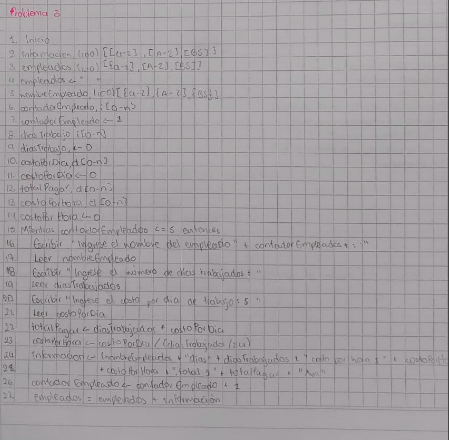 Problema 3
1. Inicio
2 informacion, (100) [[a-z], [A-Z], [ES]]
3 empleados, (100) [[a-z], [A-Z], [ES]]
4 empleados ← " "
5 nombreEmpleado, (100) [[a-z], [A-Z], [ES]]
6. contadorEmpleado, i [0-n]
7. contadorEmpleado ← 1
8. diasTrabajo, i [0-n]
9. diasTrabajo, ← 0
10. costoPorDia, d [0-n]
11. costoPorDia ← 0
12. totalPagar, d [0-n]
13. costoPorHora, d [0-n]
14 costoPor Hora ← 0
15 Mientras contadorEmpleados <= 5 entonces
16 Escribir "Ingrese el nombre del empleado" + contadorEmpleados + : "
17. Leer nombreEmpleado
18 Escribir "Ingrese el numero de dias trabajados: "
19 Leer diasTrabajados
20 Escribir "Ingrese el costo por dia de trabajo: $ "
21 Leer costoPorDia
22 totalPagar ← diasTrabajados * costoPorDia
23 costoPorHora ← costoPorDia /
24 informacion ← (nombreEmpleado + "dias" + diasTrabajados + " costo por hora $ " +
+ costoPorHora + ", total $ " + totalPagar +
26 contador Empleado ← contador Empleado + 1
27 empleados = empleados + informacion